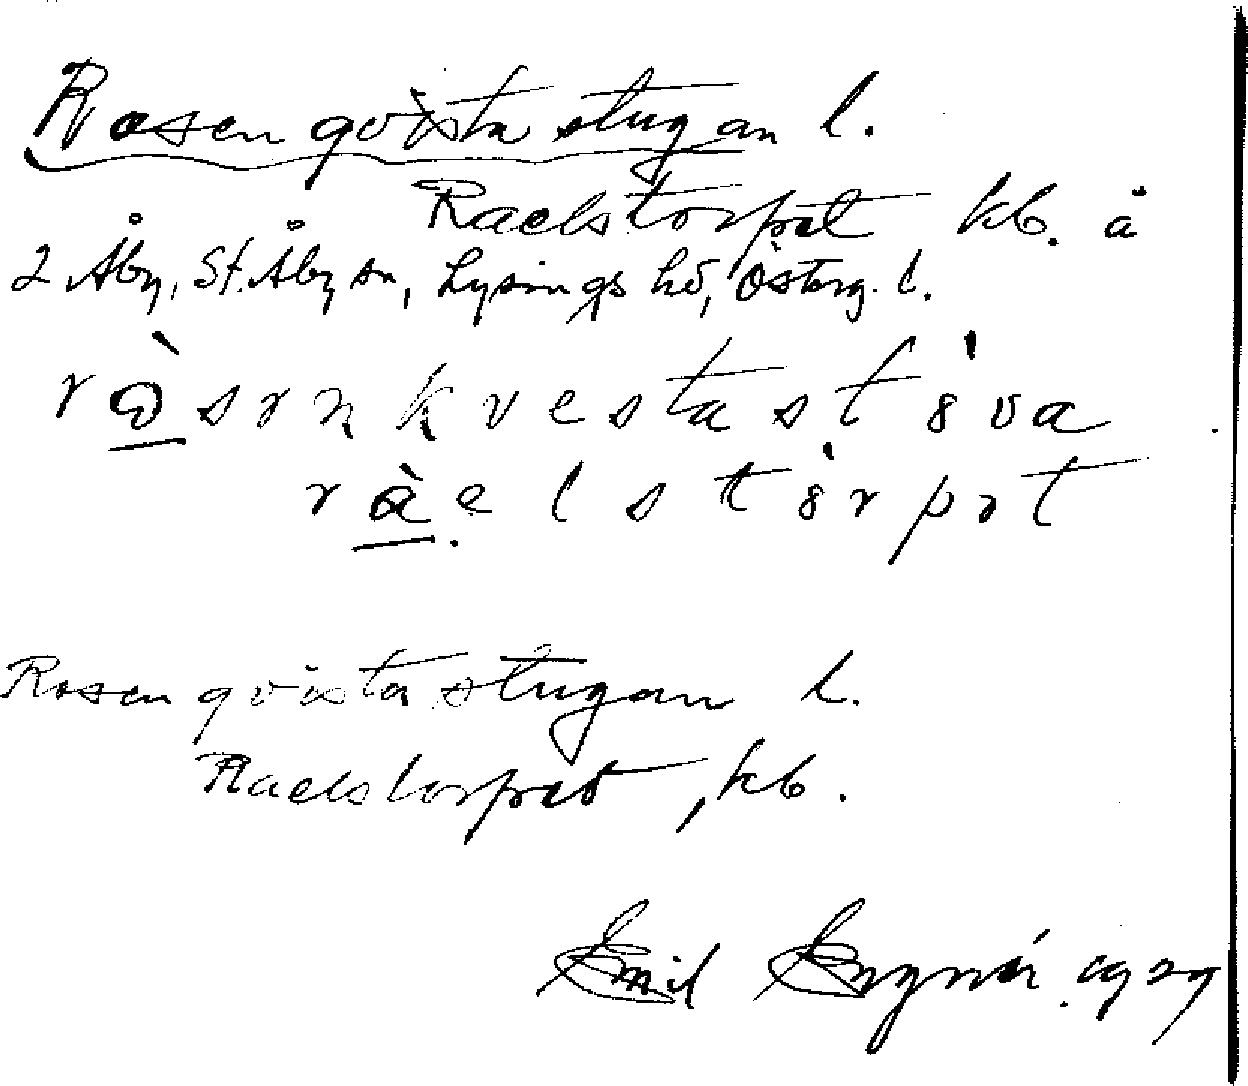 Rosenqvista stugan l.
Raelstorpet kb. å
2 Åby, St. Åby sn, Lysings hd, Österg. l.
ròsɿnkvestastȣva
ràelstȣrpɿt
Rosenqvista stugan l.
Raelstorpet, kb.
Emil 1929